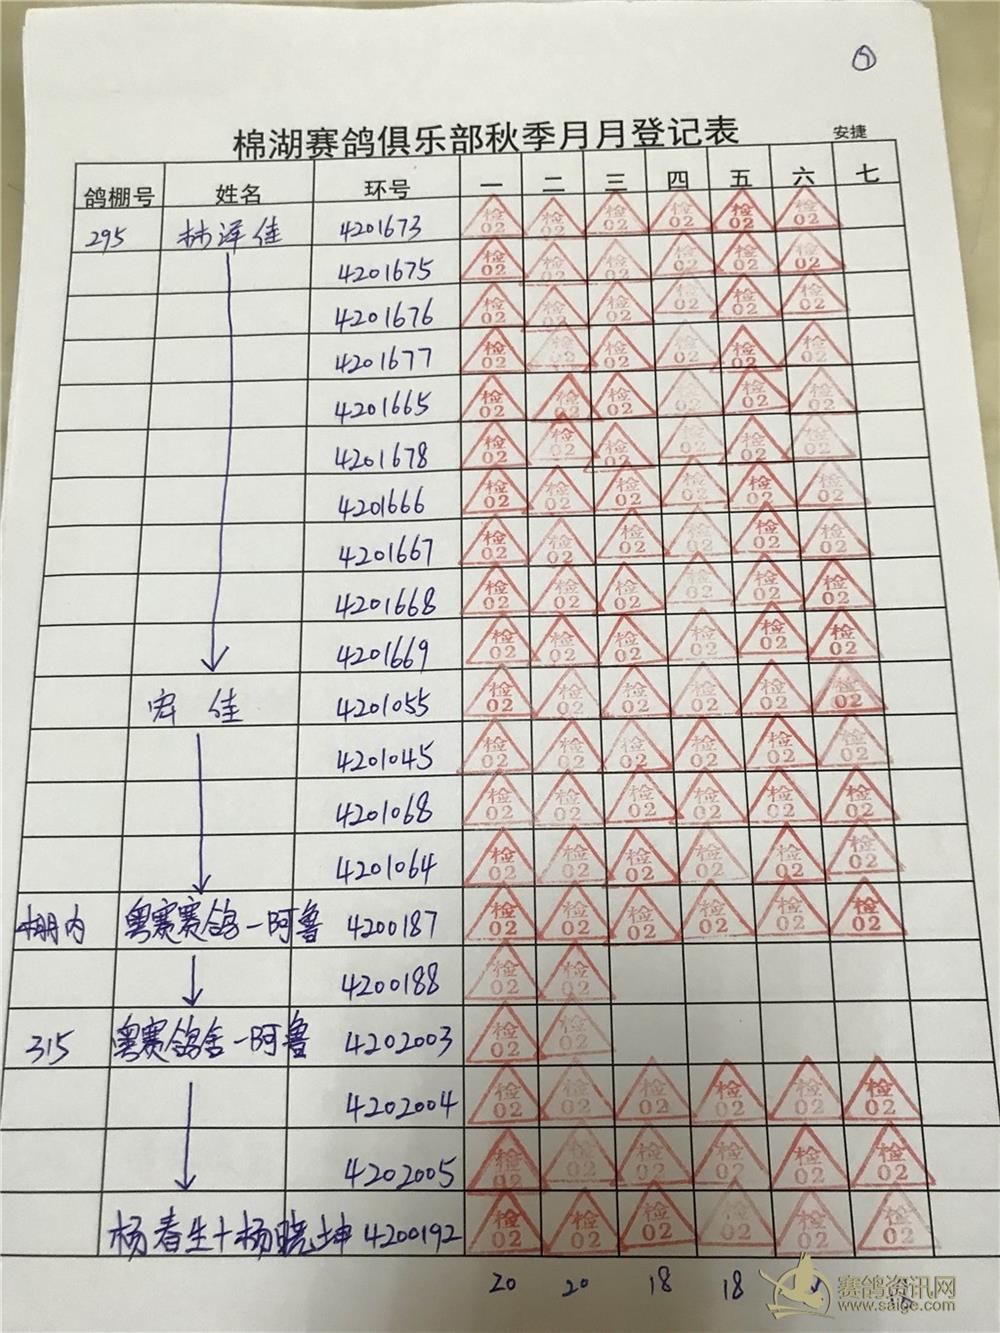 5
棉湖赛鸽俱乐部秋季月月登记表 安捷
鸽棚号 姓名 环号 一 二 三 四 五 六 七
295 林泽佳 4201673 检02 检02 检02 检02 检02 检02
4201675 检02 检02 检02 检02 检02 检02
4201676 检02 检02 检02 检02 检02 检02
4201677 检02 检02 检02 检02 检02 检02
4201665 检02 检02 检02 检02 检02 检02
4201678 检02 检02 检02 检02 检02 检02
4201666 检02 检02 检02 检02 检02 检02
4201667 检02 检02 检02 检02 检02 检02
4201668 检02 检02 检02 检02 检02 检02
4201669 检02 检02 检02 检02 检02 检02
宏佳 4201055 检02 检02 检02 检02 检02 检02
4201045 检02 检02 检02 检02 检02 检02
4201068 检02 检02 检02 检02 检02 检02
4201064 检02 检02 检02 检02 检02 检02
棚内 粤赛赛鸽-阿鲁 4200187 检02 检02 检02 检02 检02 检02
4200188 检02 检02
315 粤赛鸽舍-阿鲁 4202003 检02 检02
4202004 检02 检02 检02 检02 检02 检02
4202005 检02 检02 检02 检02 检02 检02
杨春生+杨晓坤 4200192 检02 检02 检02 检02 检02 检02
20 20 18 18
赛鸽资讯网
www.saige.com